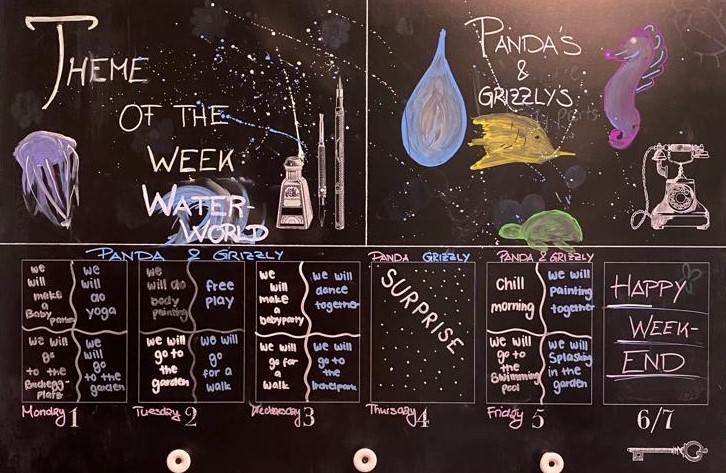 THEME
OF THE
WEEK:
WATER-
WORLD
PANDA'S
&
GRIZZLY'S
PANDA & GRIZZLY
we
will
make
a
Baby party
we
will
do
yoga
we will
go
to the
Buchegg-
platz
we
will
go
to the
garden
Monday 1
we
will do
body
painting
free
play
we will
go to
the
garden
we will
go
for a
walk
Tuesday 2
we
will
make
a
babyparty
we will
dance
together
we will
go for
a
walk
we will
go to
the
Irchelpark
Wednesday 3
PANDA GRIZZLY
SURPRISE
Thursday 4
PANDA & GRIZZLY
chill
morning
we will
painting
together
we will
go to
the
Swimming
pool
we will
Splashing
in the
garden
Friday 5
HAPPY
WEEK-
END
6/7